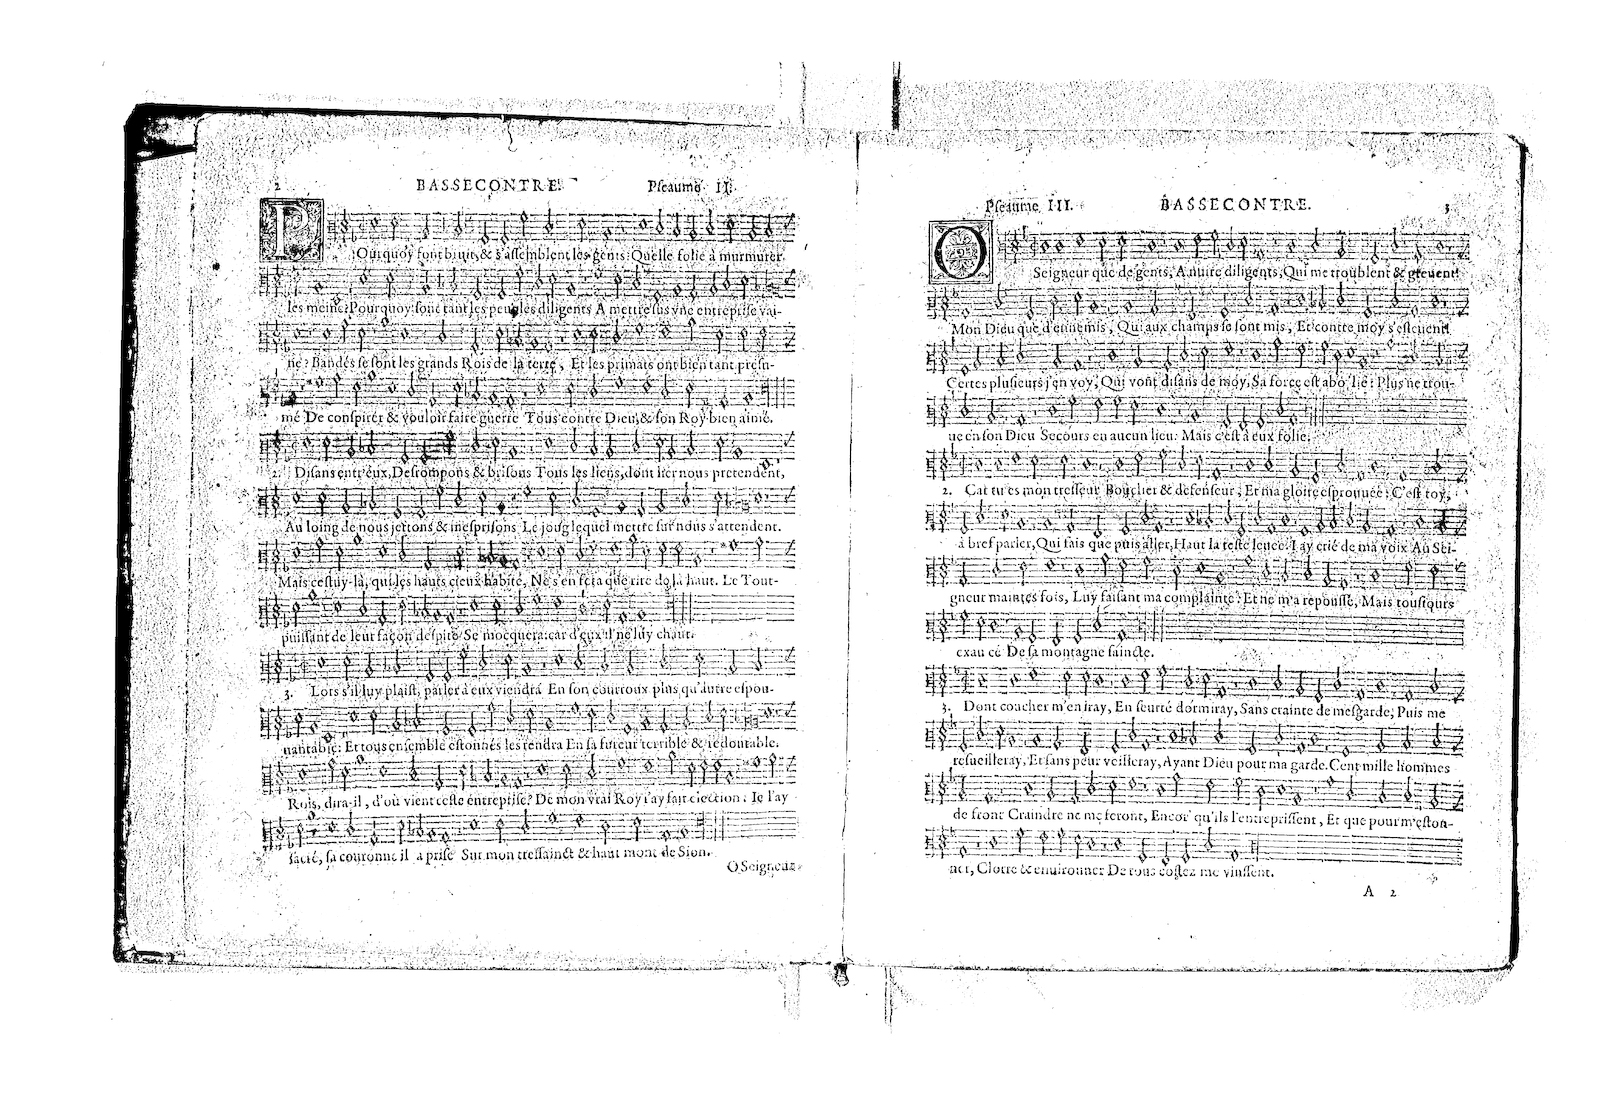 2 BASSECONTRE. Pſeaume II.
POurquoy font bruit, & s'aſſemblent les gens? Quelle folie à murmurer
les meine? Pourquoy ſont tant les peuples diligents A mettre ſus vne entrepriſe vai-
ne? Bandés ſe ſont les grands Rois de la terre, Et les primats ont bien tant preſu-
mé De conſpirer & vouloir faire guerre Tous contre Dieu, & ſon Roy bien aimé.
2. Diſans entr'eux, Deſrompons & briſons Tous les liens, dont lier nous pretendent,
Au loing de nous jettons & meſpriſons Le joug lequel mettre ſur nous s'attendent.
Mais ceſtuy-là, qui les hauts cieux habite, Ne s'en fera que rire de là haut. Le Tout-
puiſſant de leur façon deſpite Se mocquera: car d'eux il ne luy chaut.
3. Lors s'il luy plaiſt, parler à eux viendra En ſon courroux plus qu'autre eſpou-
uantable: Et tous enſemble eſtonnés les rendra En ſa fureur terrible & redoutable.
Rois, dira-il, d'où vient ceſte entrepriſe? De mon vrai Roy i'ay fait election: Ie l'ay
ſacré, ſa couronne il a priſe Sur mon treſſainct & haut mont de Sion.
O Seigneur
Pſeaume III. BASSECONTRE. 3
O Seigneur que de gents, A nuire diligents, Qui me troublent & greuent!
Mon Dieu que d'ennemis, Qui aux champs ſe ſont mis, Et contre moy s'eſleuent!
Certes pluſieurs j'en voy, Qui vont diſans de moy, Sa force eſt abo lie: Plus ne trou-
ue en ſon Dieu Secours en aucun lieu. Mais c'eſt à eux folie.
2. Car tu es mon treſſeur Bouclier & defenſeur, Et ma gloire eſprouuée: C'eſt toy,
à bref parler, Qui fais que puis aller, Haut la teſte leuée. I'ay crié de ma voix Au Sei-
gneur maintes fois, Luy faiſant ma complainte: Et ne m'a repouſſé, Mais touſiours
exau cé De ſa montagne ſaincte.
3. Dont coucher m'en iray, En ſeurté dormiray, Sans crainte de meſgarde; Puis me
reſueilleray, Et ſans peur veilleray, Ayant Dieu pour ma garde. Cent mille hommes
de front Craindre ne me feront, Encor qu'ils l'entreprinſſent, Et que pour m'eſton-
ner, Clorre & enuironner De tous coſtez me vinſſent.
A 2